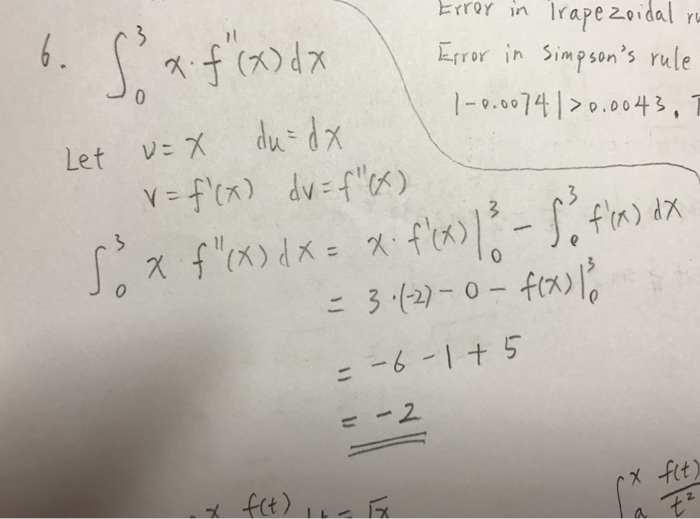 Error in Trapezoidal
Error in Simpson's rule
|-0.0074| > 0.0043.
6. ∫₀³ x · f''(x) dx
Let u = x du = dx
v = f'(x) dv = f''(x)
∫₀³ x f''(x) dx = x · f'(x)|₀³ - ∫₀³ f'(x) dx
= 3 · (-2) - 0 - f(x)|₀³
= -6 - 1 + 5
= -2
f(t) = √x
∫ₐˣ f(t)/t²